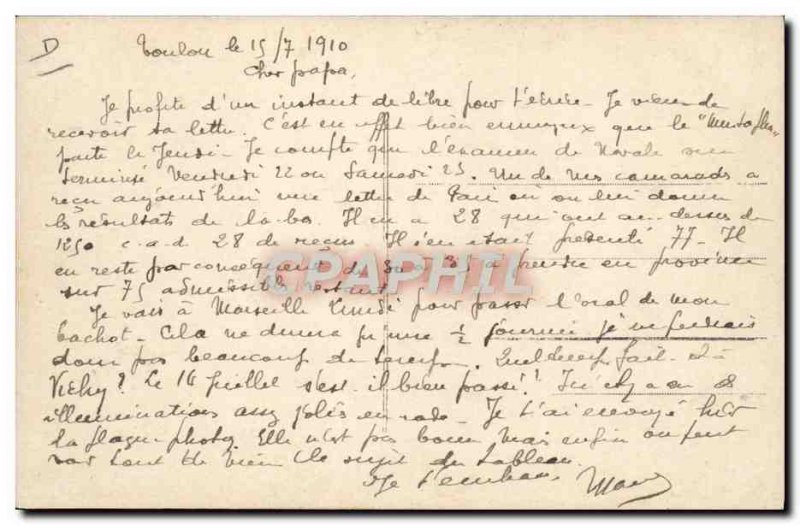 D
Toulon le 15/7 1910
Cher papa,
Je profite d'un instant de libre pour t'écrire. Je viens de
recevoir ta lettre. C'est en effet bien ennuyeux que le "
parte le Jeudi. Je compte que l'examen de Navale sera
terminé Vendredi 22 ou Samedi 23. Un de mes camarades a
reçu aujourd'hui une lettre de Paris où on lui donne
les résultats de là-bas. Il y en a 28 qui ont au-dessus de
1250 c.a.d 28 de reçus. Il s'en était présenté 77. Il
en reste par conséquent à prendre en province
sur 75 admissibles restant.
Je vais à Marseille Lundi pour passer l'oral de mon
bachot. Cela ne dure qu'une ½ journée je ne perdrais
donc pas beaucoup de temps. Quel temps fait-il à
Vichy? Le 14 Juillet s'est-il bien passé? Ici il y a eu
illuminations assez jolies en rade. Je t'ai envoyé hier
la plaque photog. Elle n'est pas bonne mais enfin on peut
voir tout de même le sujet du tableau.
Je t'embrasse
CPAPHIL